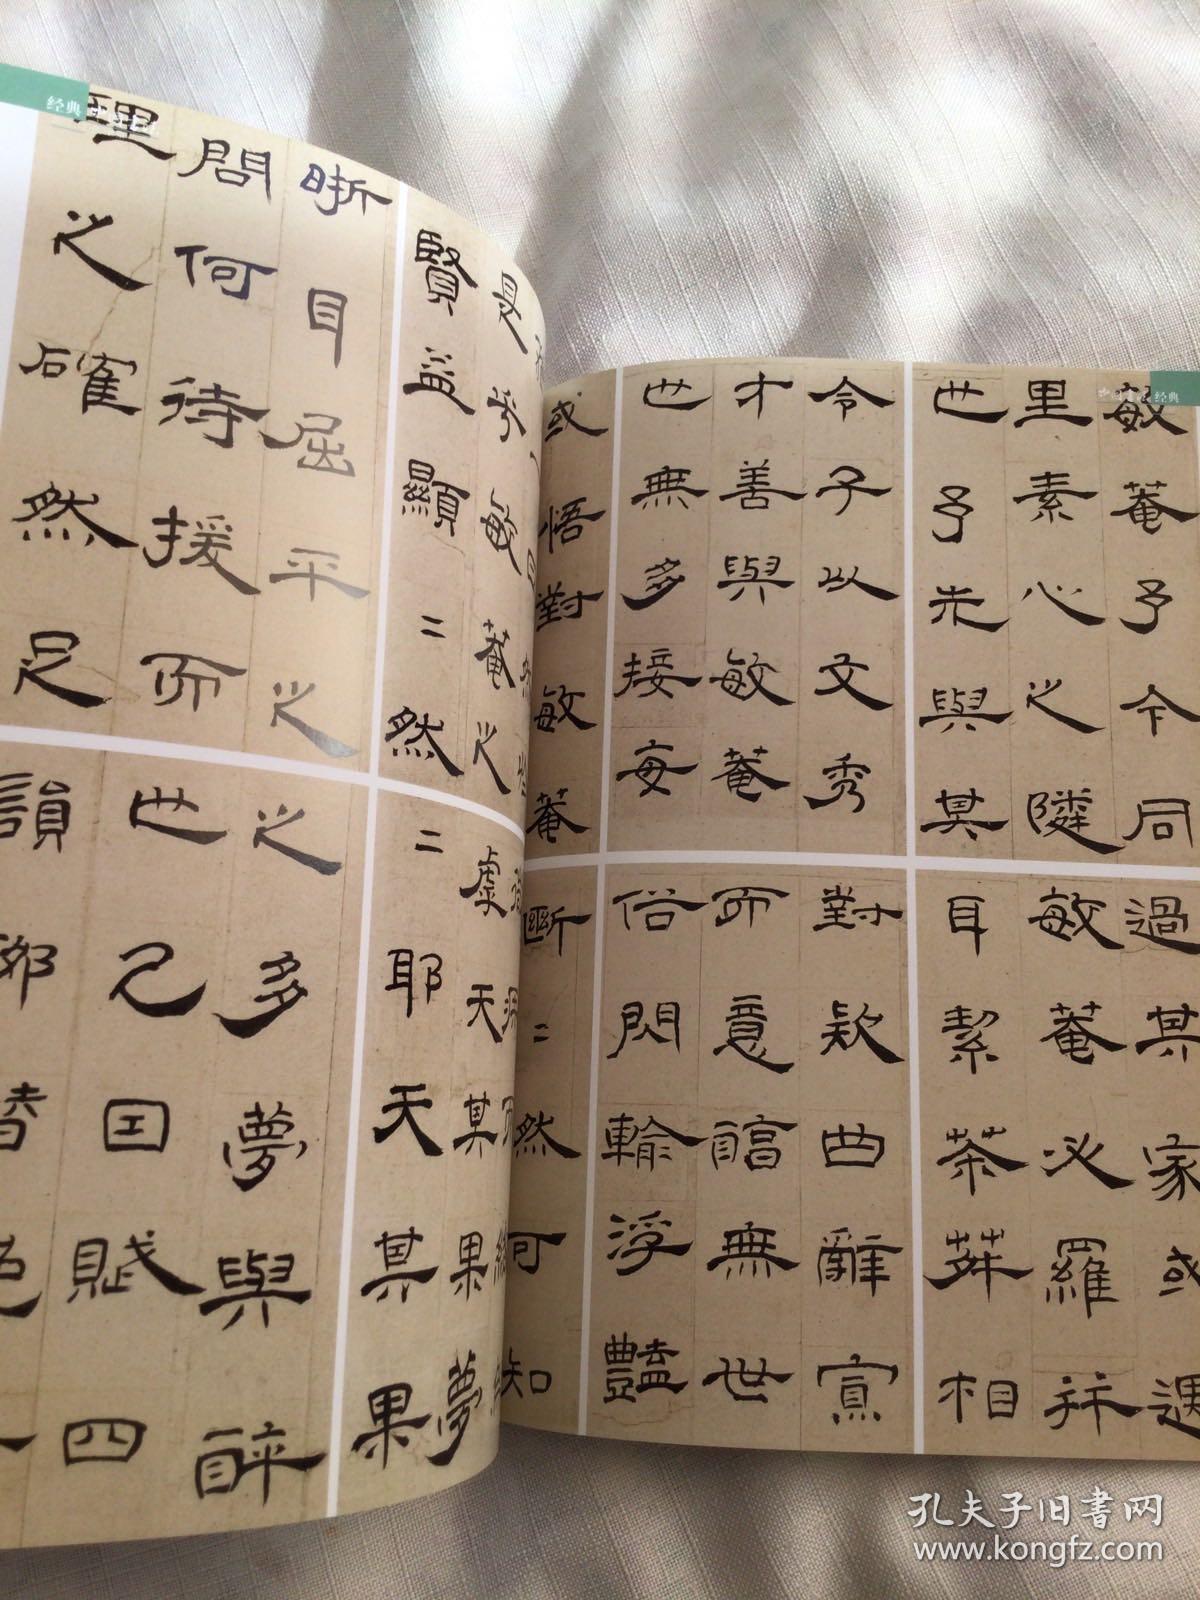 经典
中国书法 经典
敏菴予今同
里素心之隣
也予先與其
令子以文秀
才善與敏菴
也無多接每
或悟對敏菴
過其家或遇
敏菴必羅拜
耳絜茶荈相
對款曲辭寡
而意韻無世
俗閃輸浮豔
斷二然可知
是乎敏菴之
賢益顯二然
晰目屈平之
問何待援而
理之確然足
虛天某果夢
二耶天其果
之多夢與醉
也己国賦四
韻
孔夫子旧书网
www.kongfz.com